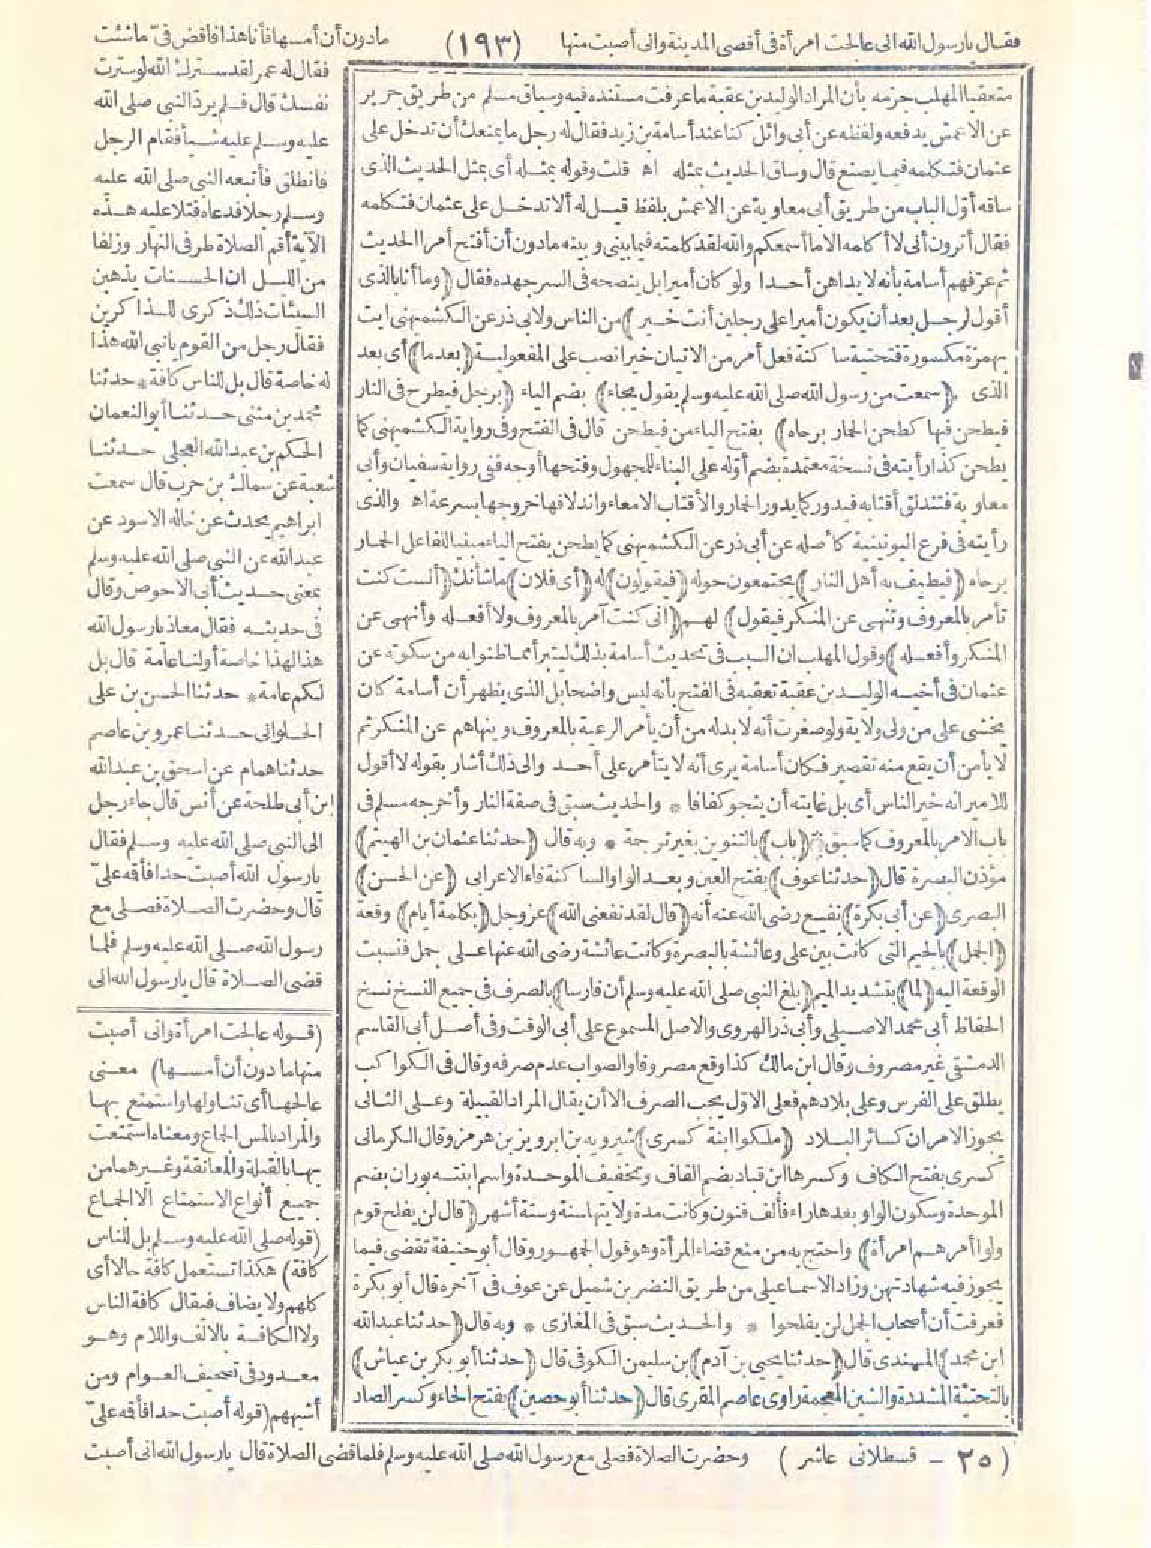 فقال يا رسول الله انى عالجت امرأة فى أقصى المدينة وانى أصبت منها (١٩٣) مادون أن أمسها فأنا هذا فاقض فىّ ما شئت
متعقبا المهلب جزمه بأن المراد الوليد بن عقبة ما عرفت مستنده فيه وسياق مسلم من طريق جرير
عن الاعمش يدفعه ولفظه عن أبى وائل كنا عند أسامة بن زيد فقال له رجل ما يمنعك أن تدخل على
عثمان فتكلمه فيما يصنع قال وساق الحديث بمثله اه قلت وقوله بمثله أى بمثل الحديث الذى
ساقه أوّل الباب من طريق أبى معاوية عن الاعمش بلفظ قيل له ألا تدخل على عثمان فتكلمه
فقال أترون أنى لا أكلمه الا ما أسمعكم والله لقد كلمته فيما بينى وبينه مادون أن أفتح أمرا الحديث
ثم عرفهم أسامة بأنه لا يداهن أحدا ولو كان أميرا بل ينصحه فى السر جهده فقال (وما أنا بالذى
أقول لرجل بعد أن يكون أميرا على رجلين أنت خير) من الناس ولابى ذر عن الكشميهنى ايت
بهمزة مكسورة فتحتية ساكنة فعل أمر من الاتيان خيرا نصب على المفعولية (بعدما) أى بعد
الذى (سمعت من رسول الله صلى الله عليه وسلم يقول يجاء) بضم الياء (برجل فيطرح فى النار
فيطحن فيها كطحن الحمار برحاه) بفتح الياء من فيطحن قال فى الفتح وفى رواية الكشميهنى كما
يطحن كذا رأيته فى نسخة معتمدة بضم أوّله على البناء للمجهول وفتحها أوجه ففى رواية سفيان وأبى
معاوية فتندلق أقتابه فيدور كما يدور الحمار والأقتاب الامعاء واندلاقها خروجها بسرعة اه والذى
رأيته فى فرع اليونينية كأصله عن أبى ذر عن الكشميهنى كما يطحن بفتح الياء مبنيا للفاعل الحمار
برحاه (فيطيف به أهل النار) يجتمعون حوله (فيقولون) له (أى فلان) ما شأنك (ألست كنت
تأمر بالمعروف وتنهى عن المنكر فيقول) لهم (انى كنت آمر بالمعروف ولا أفعله وأنهى عن
المنكر وأفعله) وقول المهلب ان السبب فى تحديث أسامة بذلك ليتبرأ مما ظنوا به من سكوته عن
عثمان فى أخيه الوليد بن عقبة تعقبه فى الفتح بأنه ليس واضحا بل الذى يظهر أن أسامة كان
يخشى على من ولى ولاية ولو صغرت أنه لا بد له من أن يأمر الرعية بالمعروف وينهاهم عن المنكر ثم
لا يأمن أن يقع منه تقصير فكان أسامة يرى أنه لا يتأمر على أحد والى ذلك أشار بقوله لا أقول
للامير انه خير الناس أى بل غايته أن ينجو كفافا * والحديث سبق فى صفة النار وأخرجه مسلم فى
باب الامر بالمعروف كما سبق * (باب) بالتنوين بغير ترجمة * وبه قال (حدثنا عثمان بن الهيثم)
مؤذن البصرة قال (حدثنا عوف) بفتح العين وبعد الواو الساكنة فاء الاعرابى (عن الحسن)
البصرى (عن أبى بكرة) نفيع رضى الله عنه أنه (قال لقد نفعنى الله) عز وجل (بكلمة أيام) وقعة
(الجمل) بالجيم التى كانت بين على وعائشة بالبصرة وكانت عائشة رضى الله عنها على جمل فنسبت
الوقعة اليه (لما) بتشديد الميم (بلغ النبى صلى الله عليه وسلم أن فارسا) بالصرف فى جميع النسخ نسخ
الحفاظ أبى محمد الاصيلى وأبى ذر الهروى والاصل المسموع على أبى الوقت وفى أصل أبى القاسم
الدمشقى غير مصروف وقال ابن مالك كذا وقع مصروفا والصواب عدم صرفه وقال فى الكواكب
يطلق على الفرس وعلى بلادهم فعلى الاوّل يجب الصرف الا أن يقال المراد القبيلة وعلى الثانى
يجوز الامران كسائر البلاد (ملكوا ابنة كسرى) شيرويه بن ابرويز بن هرمز وقال الكرمانى
كسرى بفتح الكاف وكسرها ابن قباد بضم القاف وتخفيف الموحدة واسم ابنته بوران بضم
الموحدة وسكون الواو بعدها راء فألف فنون وكانت مدة ولايتها سنة وستة أشهر (قال لن يفلح قوم
ولوا أمرهم امرأة) واحتج به من منع قضاء المرأة وهو قول الجمهور وقال أبو حنيفة تقضى فيما
يجوز فيه شهادتهن وزاد الاسماعيلى من طريق النضر بن شميل عن عوف فى آخره قال أبو بكرة
فعرفت أن أصحاب الجمل لن يفلحوا * والحديث سبق فى المغازى * وبه قال (حدثنا عبد الله
ابن محمد) المسندى قال (حدثنا يحيى بن آدم) بن سليمن الكوفى قال (حدثنا أبو بكر بن عياش)
بالتحتية المشددة والشين المعجمة راوى عاصم المقرى قال (حدثنا أبو حصين) بفتح الحاء وكسر الصاد
فقال له عمر لقد سترك الله لو سترت
نفسك قال فلم يرد النبى صلى الله
عليه وسلم عليه شيأ فقام الرجل
فانطلق فأتبعه النبى صلى الله عليه
وسلم رجلا فدعاه فتلا عليه هذه
الآية أقم الصلاة طرفى النهار وزلفا
من الليل ان الحسنات يذهبن
السيئات ذلك ذكرى للذاكرين
فقال رجل من القوم يا نبى الله هذا
له خاصة قال بل للناس كافة * حدثنا
محمد بن مثنى حدثنا أبو النعمان
الحكم بن عبد الله العجلى حدثنا
شعبة عن سماك بن حرب قال سمعت
ابراهيم يحدث عن خاله الاسود عن
عبد الله عن النبى صلى الله عليه وسلم
بمعنى حديث أبى الاحوص وقال
فى حديثه فقال معاذ يا رسول الله
هذا لهذا خاصة أو لنا عامّة قال بل
لكم عامة * حدثنا الحسن بن على
الحلوانى حدثنا عمرو بن عاصم
حدثنا همام عن اسحق بن عبد الله
ابن أبى طلحة عن أنس قال جاء رجل
الى النبى صلى الله عليه وسلم فقال
يا رسول الله أصبت حدا فأقمه علىّ
قال وحضرت الصلاة فصلى مع
رسول الله صلى الله عليه وسلم فلما
قضى الصلاة قال يا رسول الله انى
(قوله عالجت امرأة وانى أصبت
منها مادون أن أمسها) معنى
عالجها أى تناولها واستمتع بها
والمراد بالمس الجماع ومعناه استمتعت
بها بالقبلة والمعانقة وغيرهما من
جميع أنواع الاستمتاع الا الجماع
(قوله صلى الله عليه وسلم بل للناس
كافة) هكذا تستعمل كافة حالا أى
كلهم ولا يضاف فيقال كافة الناس
ولا الكافة بالالف واللام وهو
معدود فى تصحيف العوام ومن
أشبههم (قوله أصبت حدا فأقمه علىّ
(٢٥ - قسطلانى عاشر) وحضرت الصلاة فصلى مع رسول الله صلى الله عليه وسلم فلما قضى الصلاة قال يا رسول الله انى أصبت